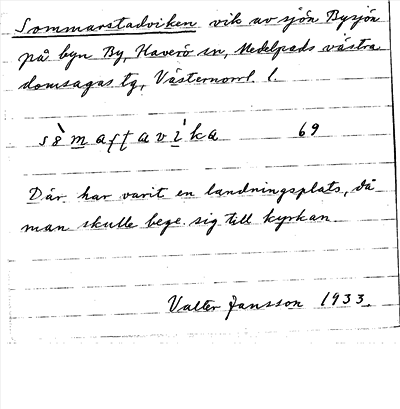 Sommarstadviken vik av sjön Bysjön
på byn By, Haverö sn, Medelpads västra
domsagas tg, Västernorrl. l.
69
Där har varit en landningsplats, då
man skulle bege sig till kyrkan.
Valter Jansson 1933.